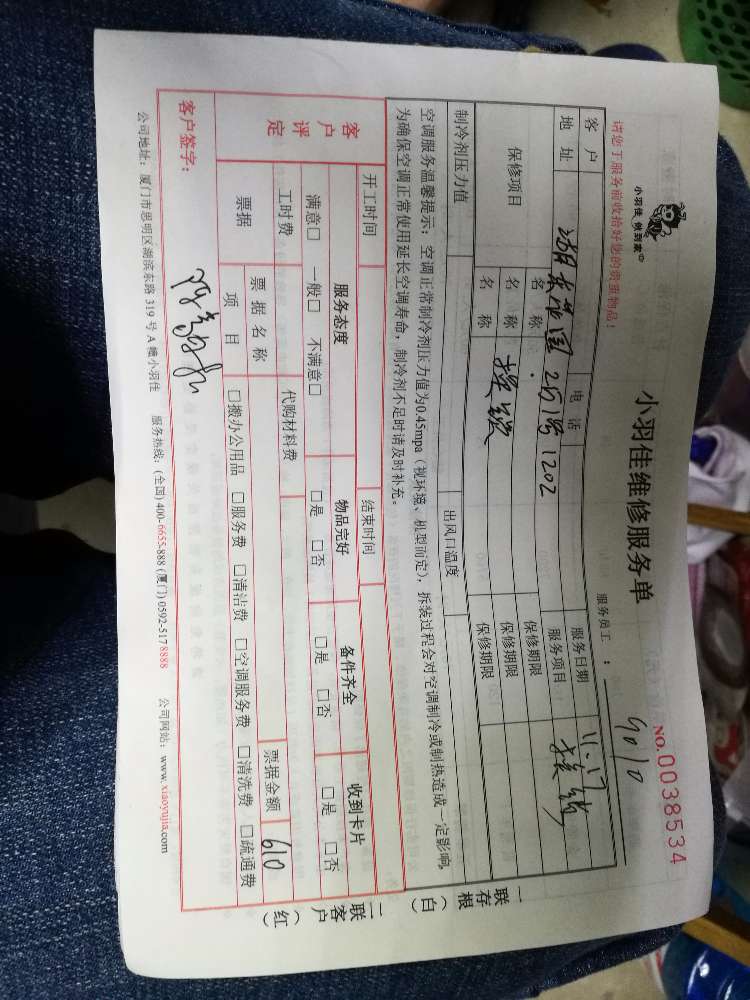 小羽佳 做到家
小羽佳维修服务单
NO.0038534
请您于服务前收拾好您的贵重物品！
服务员工：9010
客户 电话 服务日期 11.17
地址 25号1202 服务项目 换锁
保修项目 名称 保修期限
名称 换锁 保修期限
名称 保修期限
制冷剂压力值 出风口温度
空调服务温馨提示：空调正常制冷剂压力值为0.45mpa（视环境、机型而定），拆装过程会对空调制冷或制热造成一定影响，
为确保空调正常使用延长空调寿命，制冷剂不足时请及时补充。
开工时间 结束时间
客户评定 服务态度 物品完好 备件齐全 收到卡片
满意□ 一般□ 不满意□ □是 □否 □是 □否 □是 □否
工时费 代购材料费 票据金额 610
票据 票据名称
项目 □搬办公用品 □服务费 □清洁费 □空调服务费 □清洗费 □疏通费
客户签字：
公司地址：厦门市思明区湖滨东路 319 号 A 幢小羽佳 服务热线：(全国) 400-6655-888 (厦门) 0592-5178888 公司网站：www.xiaoyujia.com
一联存根（白）
二联客户（红）